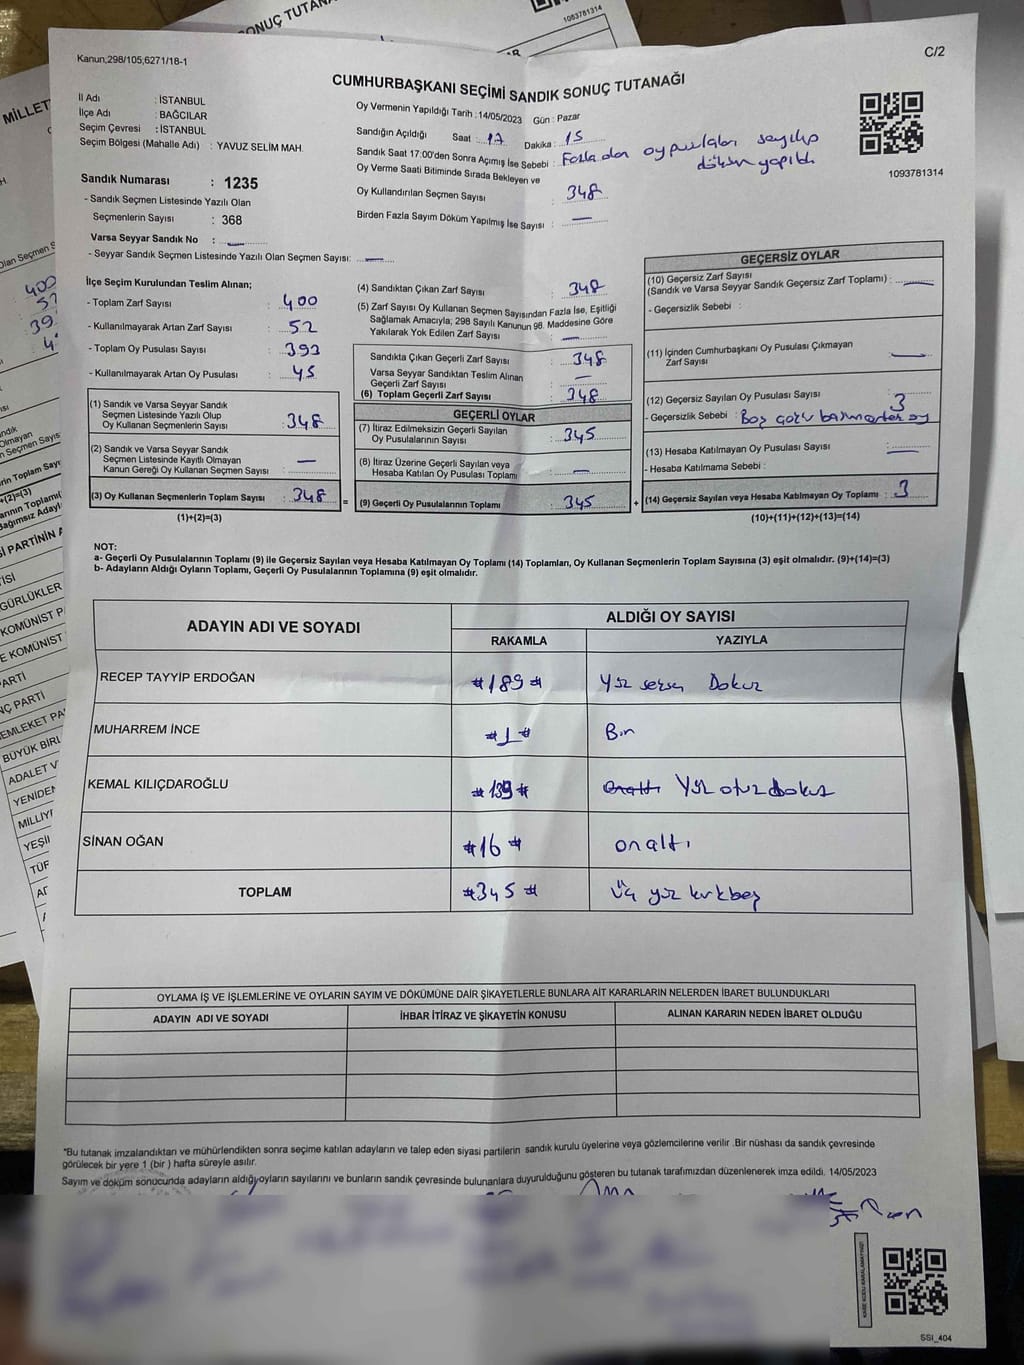 SONUÇ TUTANA
1083781314
Kanun,298/105,6271/18-1
C/2
CUMHURBAŞKANI SEÇİMİ SANDIK SONUÇ TUTANAĞI
İl Adı : İSTANBUL
İlçe Adı : BAĞCILAR
Seçim Çevresi : İSTANBUL
Seçim Bölgesi (Mahalle Adı) : YAVUZ SELİM MAH.
Sandık Numarası : 1235
- Sandık Seçmen Listesinde Yazılı Olan
Seçmenlerin Sayısı : 368
Varsa Seyyar Sandık No : —
- Seyyar Sandık Seçmen Listesinde Yazılı Olan Seçmen Sayısı: —
Oy Vermenin Yapıldığı Tarih : 14/05/2023 Gün : Pazar
Sandığın Açıldığı Saat : 17 Dakika : 15
Sandık Saat 17:00'den Sonra Açımış İse Sebebi : Fazladan oy pusulaları sayılıp
döküm yapıldı
Oy Verme Saati Bitiminde Sırada Bekleyen ve
Oy Kullandırılan Seçmen Sayısı : 348
Birden Fazla Sayım Döküm Yapılmış İse Sayısı : —
1093781314
İlçe Seçim Kurulundan Teslim Alınan;
- Toplam Zarf Sayısı : 400
- Kullanılmayarak Artan Zarf Sayısı : 52
- Toplam Oy Pusulası Sayısı : 393
- Kullanılmayarak Artan Oy Pusulası : 45
(1) Sandık ve Varsa Seyyar Sandık
Seçmen Listesinde Yazılı Olup
Oy Kullanan Seçmenlerin Sayısı : 348
(2) Sandık ve Varsa Seyyar Sandık
Seçmen Listesinde Kayıtlı Olmayan
Kanun Gereği Oy Kullanan Seçmen Sayısı : —
(3) Oy Kullanan Seçmenlerin Toplam Sayısı : 348
(1)+(2)=(3)
(4) Sandıktan Çıkan Zarf Sayısı : 348
(5) Zarf Sayısı Oy Kullanan Seçmen Sayısından Fazla İse, Eşitliği
Sağlamak Amacıyla; 298 Sayılı Kanunun 98. Maddesine Göre
Yakılarak Yok Edilen Zarf Sayısı : —
Sandıkta Çıkan Geçerli Zarf Sayısı : 348
Varsa Seyyar Sandıktan Teslim Alınan
Geçerli Zarf Sayısı : —
(6) Toplam Geçerli Zarf Sayısı : 348
GEÇERLİ OYLAR
(7) İtiraz Edilmeksizin Geçerli Sayılan
Oy Pusulalarının Sayısı : 345
(8) İtiraz Üzerine Geçerli Sayılan veya
Hesaba Katılan Oy Pusulası Toplamı : —
= (9) Geçerli Oy Pusulalarının Toplamı : 345 +
GEÇERSİZ OYLAR
(10) Geçersiz Zarf Sayısı
(Sandık ve Varsa Seyyar Sandık Geçersiz Zarf Toplamı) : —
- Geçersizlik Sebebi :
(11) İçinden Cumhurbaşkanı Oy Pusulası Çıkmayan
Zarf Sayısı : —
(12) Geçersiz Sayılan Oy Pusulası Sayısı : 3
- Geçersizlik Sebebi : Boş
oy
(13) Hesaba Katılmayan Oy Pusulası Sayısı : —
- Hesaba Katılmama Sebebi :
(14) Geçersiz Sayılan veya Hesaba Katılmayan Oy Toplamı : 3
(10)+(11)+(12)+(13)=(14)
NOT:
a- Geçerli Oy Pusulalarının Toplamı (9) ile Geçersiz Sayılan veya Hesaba Katılmayan Oy Toplamı (14) Toplamları, Oy Kullanan Seçmenlerin Toplam Sayısına (3) eşit olmalıdır. (9)+(14)=(3)
b- Adayların Aldığı Oyların Toplamı, Geçerli Oy Pusulalarının Toplamına (9) eşit olmalıdır.
ADAYIN ADI VE SOYADI ALDIĞI OY SAYISI
RAKAMLA YAZIYLA
RECEP TAYYİP ERDOĞAN #189# Yüz seksen Dokuz
MUHARREM İNCE #1# Bir
KEMAL KILIÇDAROĞLU #139# onaltı Yüz otuzdokuz
SİNAN OĞAN #16# onaltı
TOPLAM #345# Üç yüz kırkbeş
OYLAMA İŞ VE İŞLEMLERİNE VE OYLARIN SAYIM VE DÖKÜMÜNE DAİR ŞİKAYETLERLE BUNLARA AİT KARARLARIN NELERDEN İBARET BULUNDUKLARI
ADAYIN ADI VE SOYADI İHBAR İTİRAZ VE ŞİKAYETİN KONUSU ALINAN KARARIN NEDEN İBARET OLDUĞU
"Bu tutanak imzalandıktan ve mühürlendikten sonra seçime katılan adayların ve talep eden siyasi partilerin sandık kurulu üyelerine veya gözlemcilerine verilir .Bir nüshası da sandık çevresinde
görülecek bir yere 1 (bir ) hafta süreyle asılır.
Sayım ve döküm sonucunda adayların aldığı oyların sayılarını ve bunların sandık çevresinde bulunanlara duyurulduğunu gösteren bu tutanak tarafımızdan düzenlenerek imza edildi. 14/05/2023
SSI_404